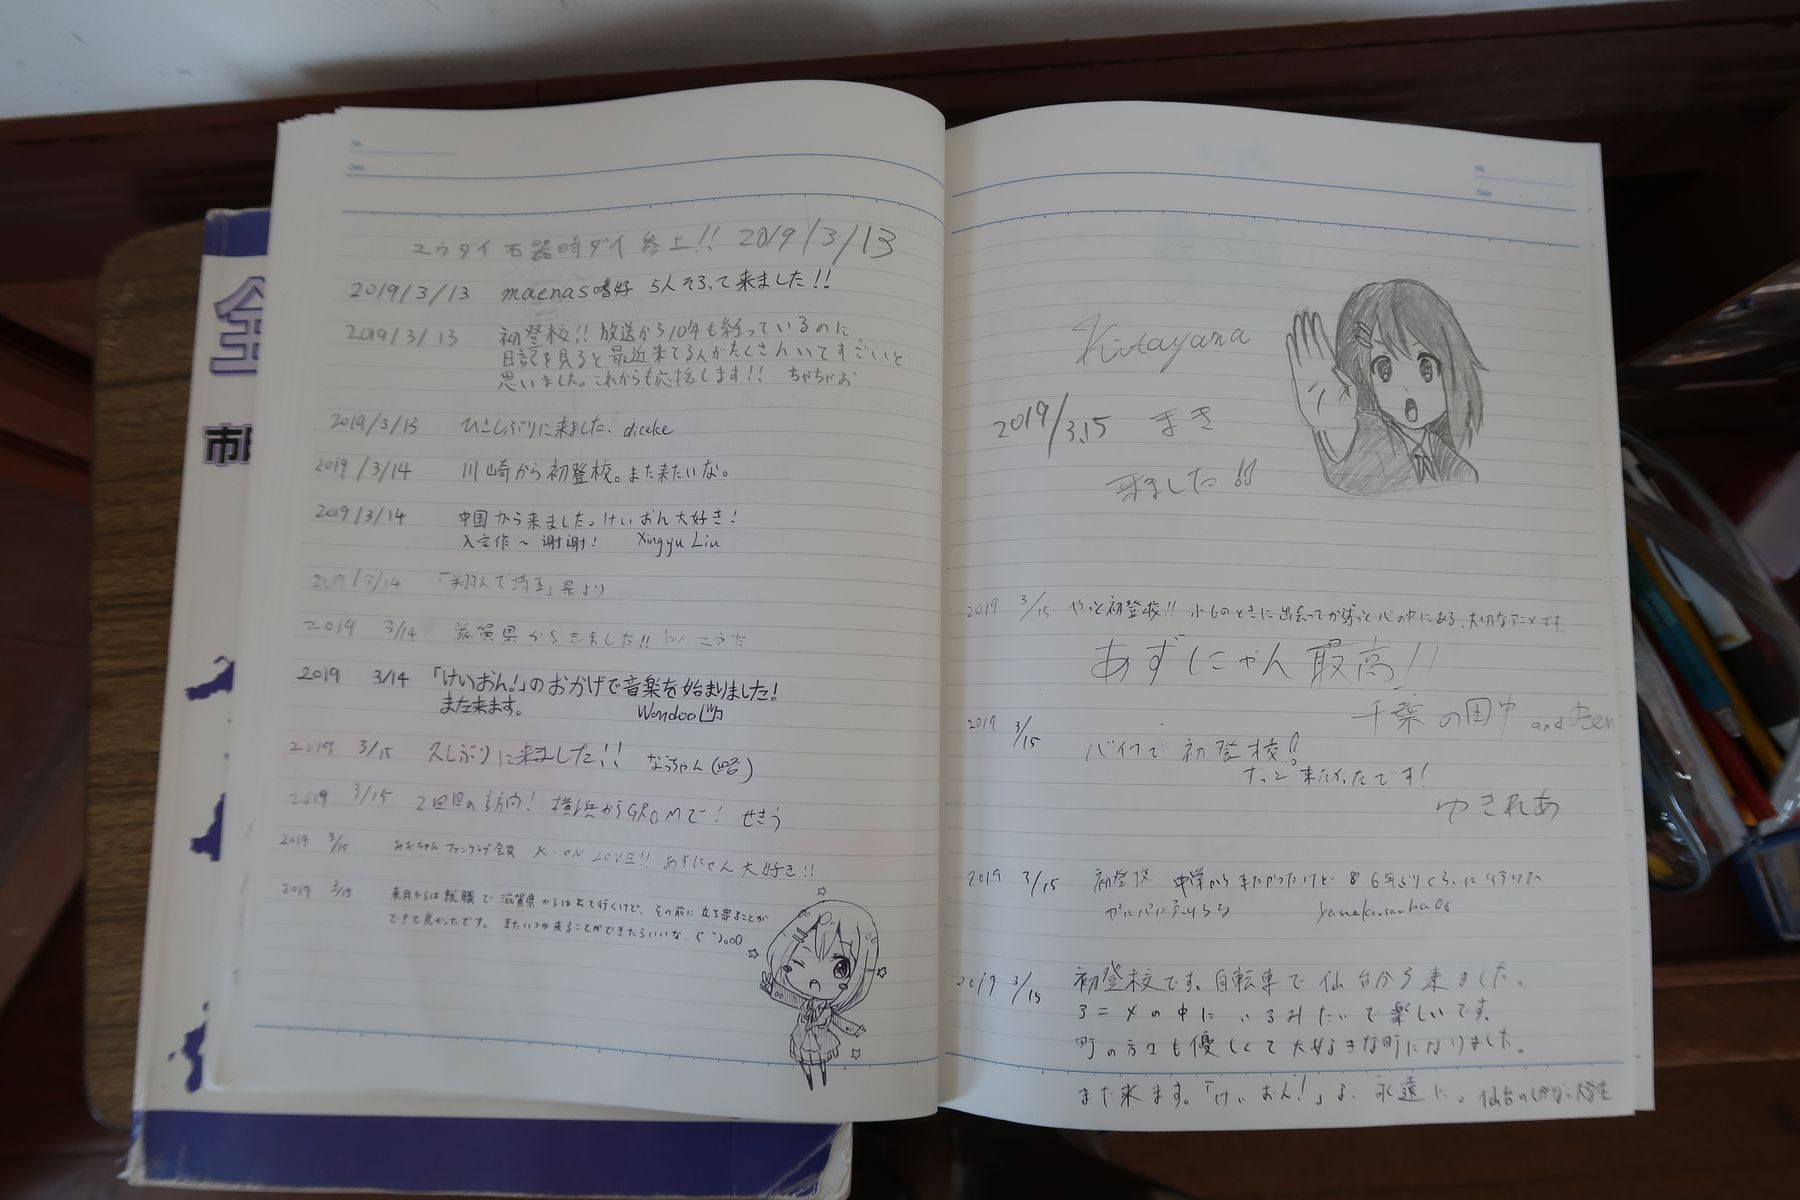 No.
Date
ユウダイ 石器時ダイ 参上!! 2019/3/13
2019/3/13 maenas嗜好 5人そろって来ました!!
2019/3/13 初登校!! 放送から10年も経っているのに
日記を見ると最近来てる人がたくさんいてすごいと
思いました。これからも応援します!! ちゃちゃお
2019/3/13 ひさしぶりに来ました、diceke
2019/3/14 川崎から初登校。また来たいな。
2019/3/14 中国から来ました。けいおん大好き!
謝謝! Xingyu Liu
2019/3/14 「翔んで埼玉」県より
2019 3/14 滋賀県からきました!! by こうた
2019 3/14 「けいおん!」のおかげで音楽を始まりました!
また来ます。 Wondoo
2019 3/15 久しぶりに来ました!! なっちゃん(略)
2019 3/15 2回目の訪問! 横浜からGROMで! せきう
2019 3/15 みおちゃん ファンクラブ会員 K-ON LOVE!! あずにゃん大好き!!
2019 3/15 来月からは就職で滋賀県からは出て行くけど、その前に立ち寄ることが
できて良かったです。またいつか来ることができたらいいな…
No
Date
Kitayama
2019/3.15 まき
ました!!
2019 3/15 やっと初登校!! 小6のときに出会ってからずっと心の中にある、大切なアニメです。
あずにゃん最高!!
千葉の田中 and
2019 3/15 バイクで初登校!!
ずっと来たかったです!
ゆきれあ
2019 3/15 初登校 中学から
2019 3/15 初登校です。自転車で仙台から来ました。
アニメの中にいるみたいで楽しいです。
町の方々も優しくて大好きな町になりました。
また来ます。「けいおん!」よ、永遠に。 仙台の
市